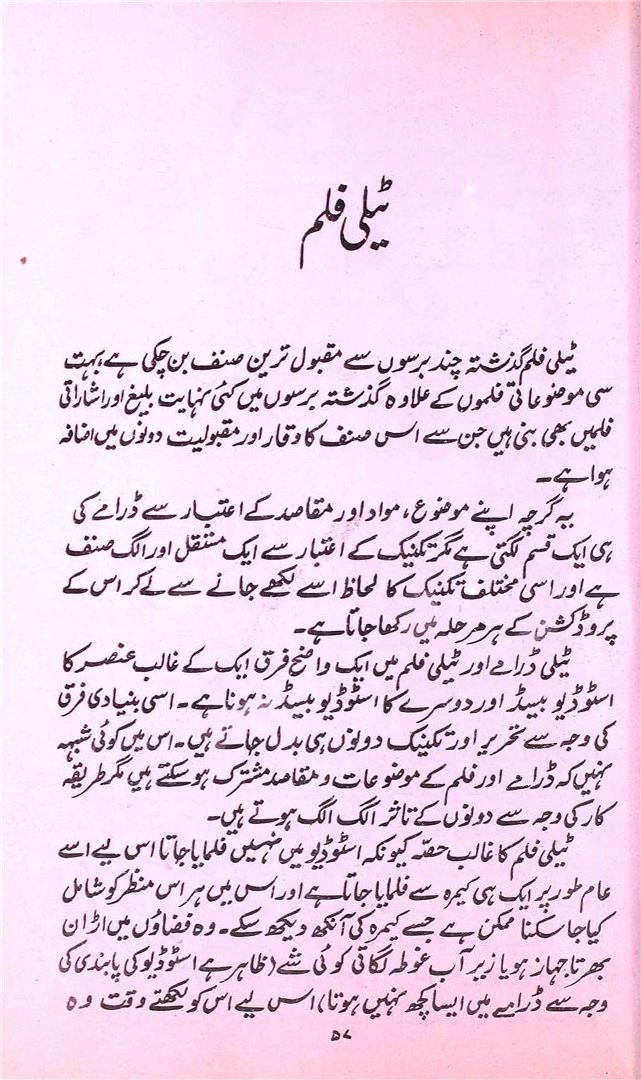 ٹیلی فلم
ٹیلی فلم گذشتہ چند برسوں سے مقبول ترین صنف بن چکی ہے، بہت
سی موضوعاتی فلموں کے علاوہ گذشتہ برسوں میں کئی نہایت بلیغ اور اشاراتی
فلمیں بھی بنی ہیں جن سے اس صنف کا وقار اور مقبولیت دونوں میں اضافہ
ہوا ہے۔
یہ گرچہ اپنے موضوع، مواد اور مقاصد کے اعتبار سے ڈرامے کی
ہی ایک قسم لگتی ہے مگر تکنیک کے اعتبار سے ایک مستقل اور الگ صنف
ہے اور اسی مختلف تکنیک کا لحاظ اسے لکھے جانے سے لے کر اس کے
پروڈکشن کے ہر مرحلہ میں رکھا جاتا ہے۔
ٹیلی ڈرامے اور ٹیلی فلم میں ایک واضح فرق ایک کے غالب عنصر کا
اسٹوڈیو بیسڈ اور دوسرے کا اسٹوڈیو بیسڈ نہ ہونا ہے۔ اسی بنیادی فرق
کی وجہ سے تحریر اور تکنیک دونوں ہی بدل جاتے ہیں۔ اس میں کوئی شبہہ
نہیں کہ ڈرامے اور فلم کے موضوعات و مقاصد مشترک ہو سکتے ہیں مگر طریقہ
کار کی وجہ سے دونوں کے تاثر الگ الگ ہوتے ہیں۔
ٹیلی فلم کا غالب حصّہ کیونکہ اسٹوڈیو میں نہیں فلمایا جاتا اس لیے اسے
عام طور پر ایک ہی کیمرہ سے فلمایا جاتا ہے اور اس میں ہر اس منظر کو شامل
کیا جا سکنا ممکن ہے جسے کیمرہ کی آنکھ دیکھ سکے۔ وہ فضاؤں میں اڑان
بھرتا جہاز ہو یا زیرِ آب غوطہ لگاتی کوئی شے (ظاہر ہے اسٹوڈیو کی پابندی کی
وجہ سے ڈرامے میں ایسا کچھ نہیں ہوتا) اس لیے اس کو لکھتے وقت وہ
۵۷